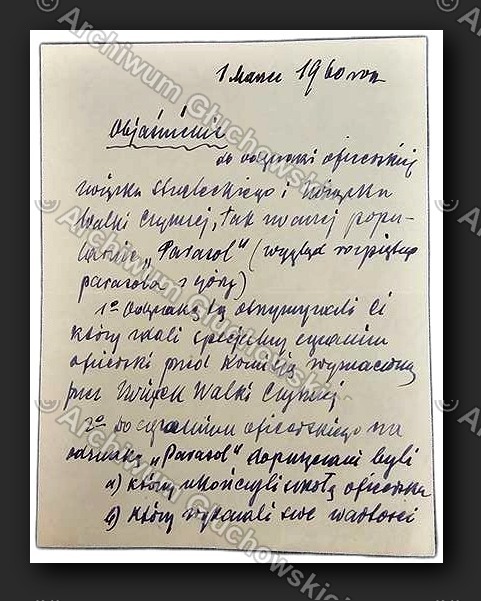 1 Marzec 1960 rok
Objaśnienie
do odznaki oficerskiej
Związku Strzeleckiego i Związku
Walki Czynnej, tak zwanej popu-
larnie „Parasol" (wygląd rozpiętego
parasola z góry)
1° Odznakę tą otrzymywali Ci
którzy zdali specjalny egzamin
oficerski przed Komisją wyznaczoną
przez Związek Walki Czynnej
2° Do egzaminu oficerskiego na
odznakę „Parasol" dopuszczani byli
a) którzy ukończyli szkołę oficerską
b) którzy wykazali swe wartości
© Archiwum Głuchowskich